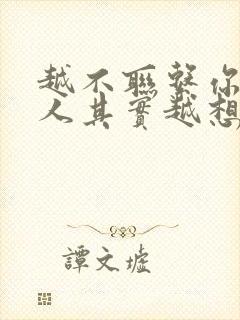 越不聯繫你
人其實越想
譚文墟